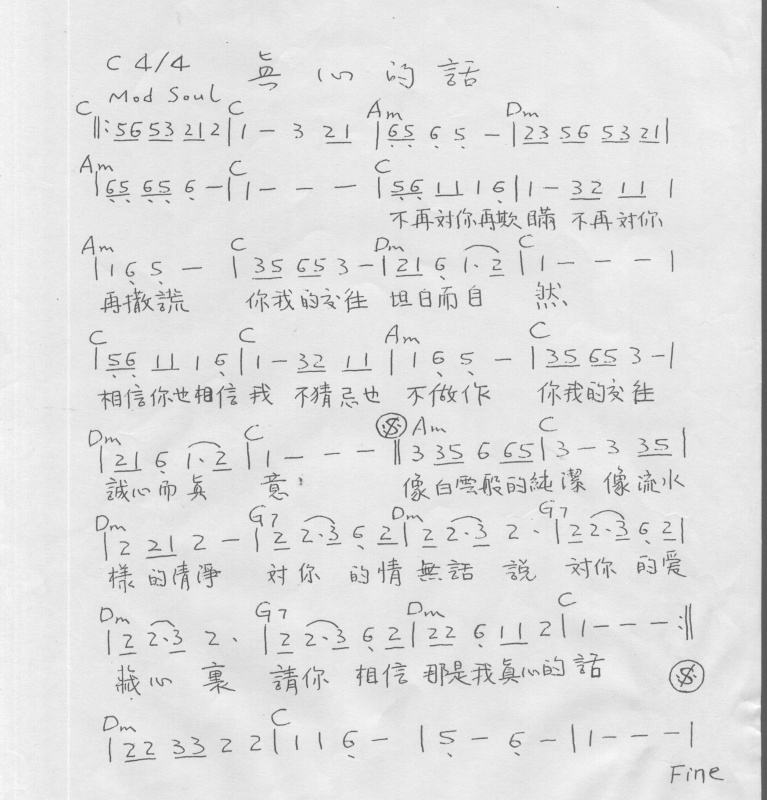 C 4/4 真心的話
Mod Soul
C C Am Dm
‖: 56 53 21 2 | 1 - 3 21 | 65 6 5 - | 23 56 53 21 |
Am C C
| 65 65 6 - | 1 - - - | 56 11 1 6 | 1 - 32 11 |
不再対你再欺瞞 不再対你
Am C Dm C
| 1 6 5 - | 35 65 3 - | 21 6 1. 2 | 1 - - - |
再撒謊 你我的交往 坦白而自 然
C C Am C
| 56 11 1 6 | 1 - 32 11 | 1 6 5 - | 35 65 3 - |
相信你也相信我 不猜忌也 不做作 你我的交往
Dm C Am C
| 21 6 1. 2 | 1 - - - ‖ 3 35 6 65 | 3 - 3 35 |
誠心而真 意 像白雲般的純潔 像流水
Dm G7 Dm G7
| 2 21 2 - | 2 2.3 6 2 | 2 2.3 2 . | 2 2.3 6 2 |
樣的清淨 対你 的情 無話 說 対你 的爱
Dm G7 Dm C
| 2 2.3 2 . | 2 2.3 6 2 | 22 6 11 2 | 1 - - - :‖
藏心 裏 請你 相信 那是我真心的話
Dm C
| 22 33 2 2 | 1 1 6 - | 5 - 6 - | 1 - - - |
Fine